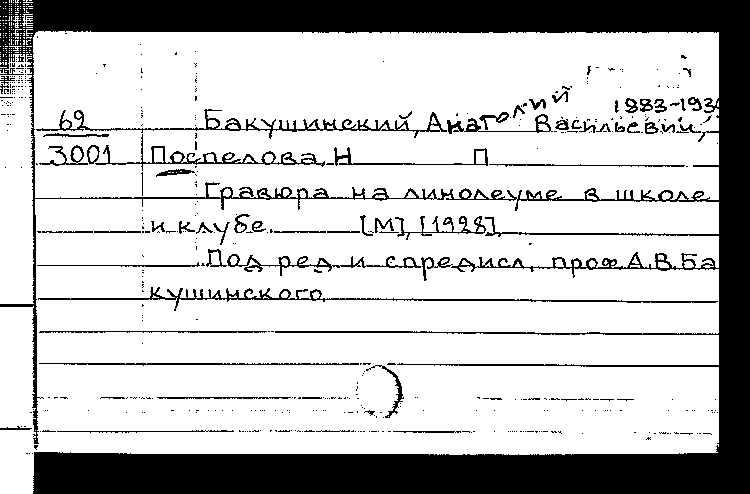 62 Бакушинский, Анатолий Васильевич, 1883-193
3001 Поспелова, Н П
Гравюра на линолеуме в школе
и клубе. [М], [1928].
Под ред и спредисл. проф. А.В.Ба
кушинского.